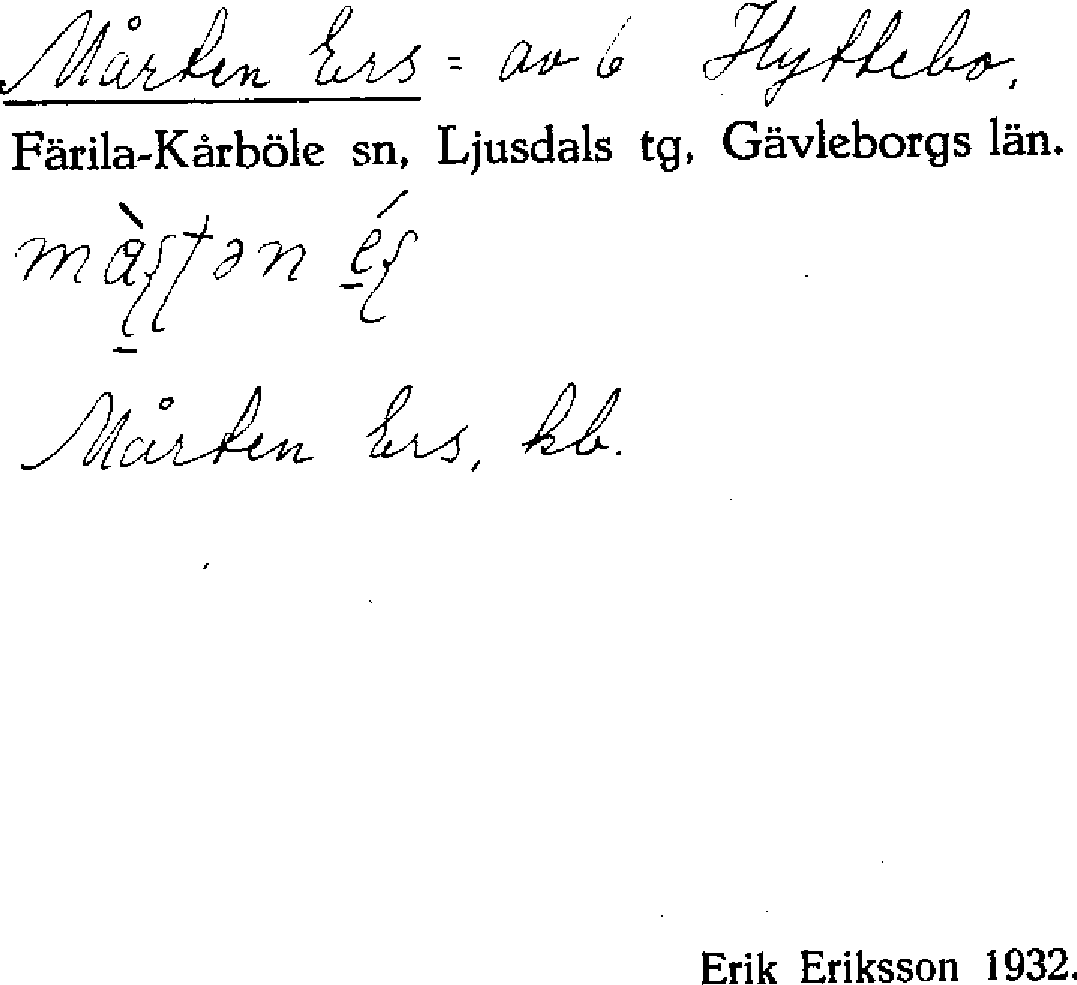 Mårten Ers = av 6 Hyttebo.
Färila-Kårböle sn, Ljusdals tg, Gävleborgs län.
Mårten Ers, kb.
Erik Eriksson 1932.